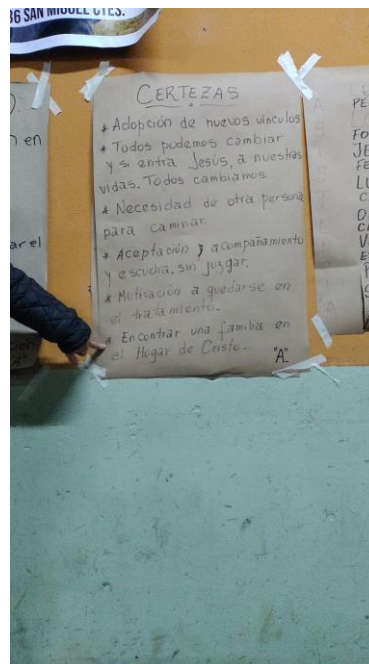 36 SAN MIGUEL CTES.
CERTEZAS
* Adopción de nuevos vinculos
* Todos podemos cambiar
y si entra Jesús, a nuestras
vidas. Todos cambiamos
* Necesidad de otra persona
para caminar.
* Aceptación y acompañamiento
y escucha, sin juzgar.
* Motivación a quedarse en
el tratamiento.
* Encontrar una familia en
el Hogar de Cristo.
"A"
en
ar el
PE
FO
JE
FE
LU
C